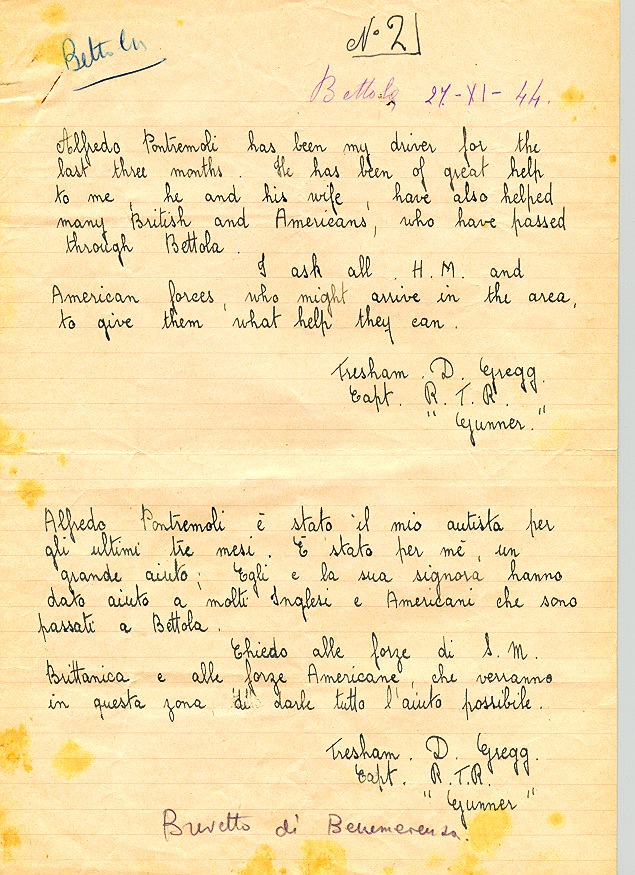 Bettola
N° 2
Bettola 27-XI-44.
Alfredo Pontremoli has been my driver for the
last three months. He has been of great help
to me, he and his wife, have also helped
many British and Americans, who have passed
through Bettola.
I ask all H.M. and
American forces, who might arrive in the area,
to give them what help they can.
Tresham. D. Gregg.
Capt. R.T.R.
"Gunner."
Alfredo Pontremoli è stato il mio autista per
gli ultimi tre mesi. E stato per mè, un
grande aiuto; Egli e la sua signora hanno
dato aiuto a molti Inglesi e Americani che sono
passati a Bettola.
Chiedo alle forze di S.M.
Brittanica e alle forze Americane, che verranno
in questa zona di darle tutto l'aiuto possibile.
Tresham. D. Gregg.
Capt. R.T.R.
"Gunner"
Brevetto di Benemerenza.